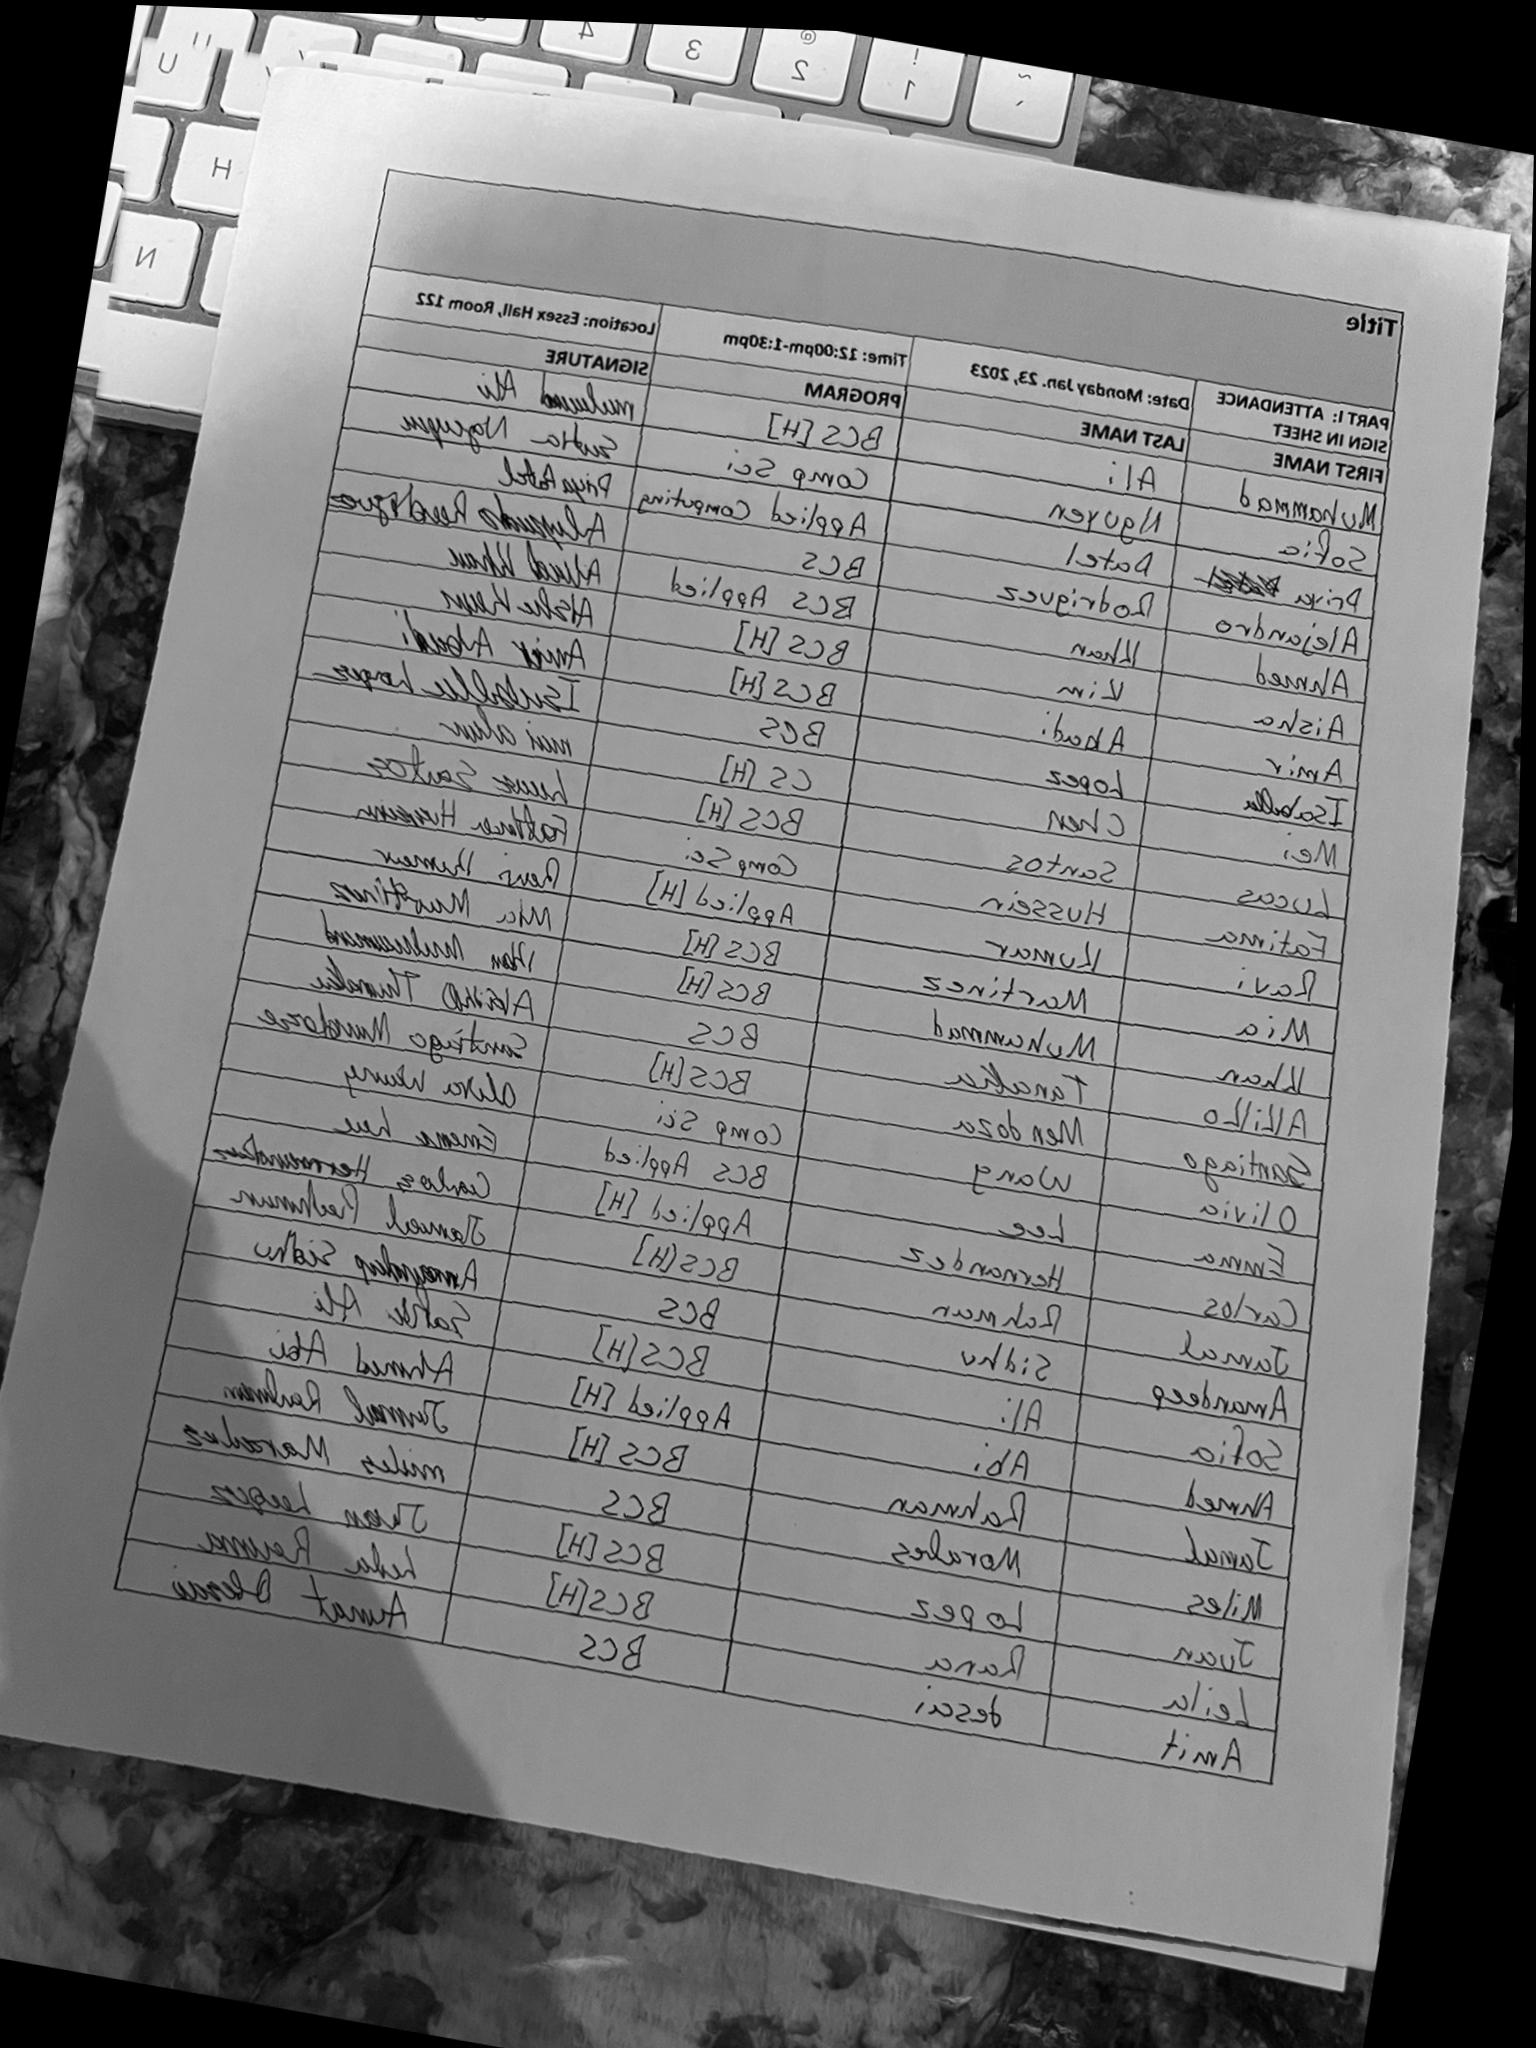 Title
PART I: ATTENDANCE SIGN IN SHEET Date: Monday Jan. 23, 2023 Time: 12:00pm-1:30pm Location: Essex Hall, Room 122
FIRST NAME LAST NAME PROGRAM SIGNATURE
Muhammad Ali BCS [H] Ali
Sofia Nguyen Comp Sci Nguyen
Priya Patel Applied Computing Priya Patel
Alejandro Rodriguez BCS Alejandro Rodriguez
Ahmed Khan BCS Applied Ahmed Khan
Aisha Kim BCS [H] Aisha
Amir Abadi BCS [H] Amir Abadi
Isabella Lopez BCS Isabella Lopez
Mei Chen CS [H] mei chen
Lucas Santos BCS [H] Lucas Santos
Fatima Hussein Comp Sci Fatima Hussein
Ravi Kumar Applied [H] Ravi Kumar
Mia Martinez BCS [H] Mia Martinez
Khan Muhammad BCS [H] Khan Muhammad
Tanaka BCS
Santiago Mendoza BCS [H] Santiago Mendoza
Olivia Wang Comp Sci Olivia Wang
Emma Lee BCS Applied Emma Lee
Carlos Hernandez Applied [H] Carlos Hernandez
Jamal Rahman BCS [H] Jamal Rahman
Amandeep Sidhu BCS Amandeep Sidhu
Sofia Ali BCS [H] Sofia Ali
Ahmed Abi Applied [H] Ahmed Abi
Jamal Rahman BCS [H] Jamal Rahman
Miles Morales BCS miles Morales
Juan Lopez BCS [H] Juan Lopez
Leila Rana BCS [H] Leila
Amit desai BCS